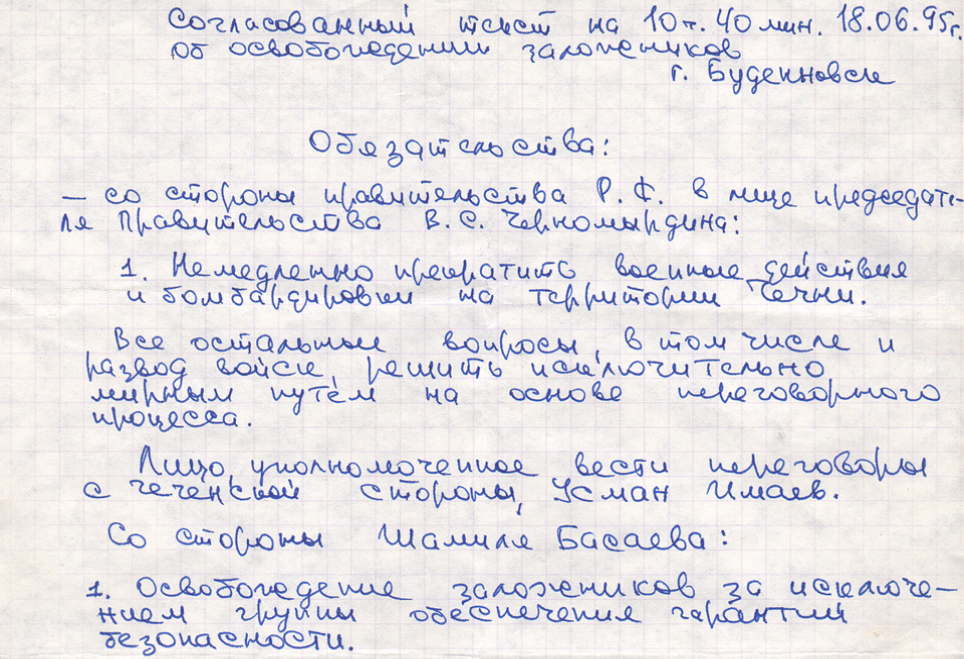 Согласованный текст на 10ч. 40 мин. 18.06.95г.
об освобождении заложников
г. Буденновск
Обязательства:
– со стороны правительства Р.Ф. в лице председате-
ля Правительства В.С. Черномырдина:
1. Немедленно прекратить военные действия
и бомбардировки на территории Чечни.
Все остальные вопросы, в том числе и
развод войск, решить исключительно
мирным путём на основе переговорного
процесса.
Лицо, уполномоченное вести переговоры
с чеченской стороны, Усман Имаев.
Со стороны Шамиля Басаева:
1. Освобождение заложников за исключе-
нием группы обеспечения гарантий
безопасности.